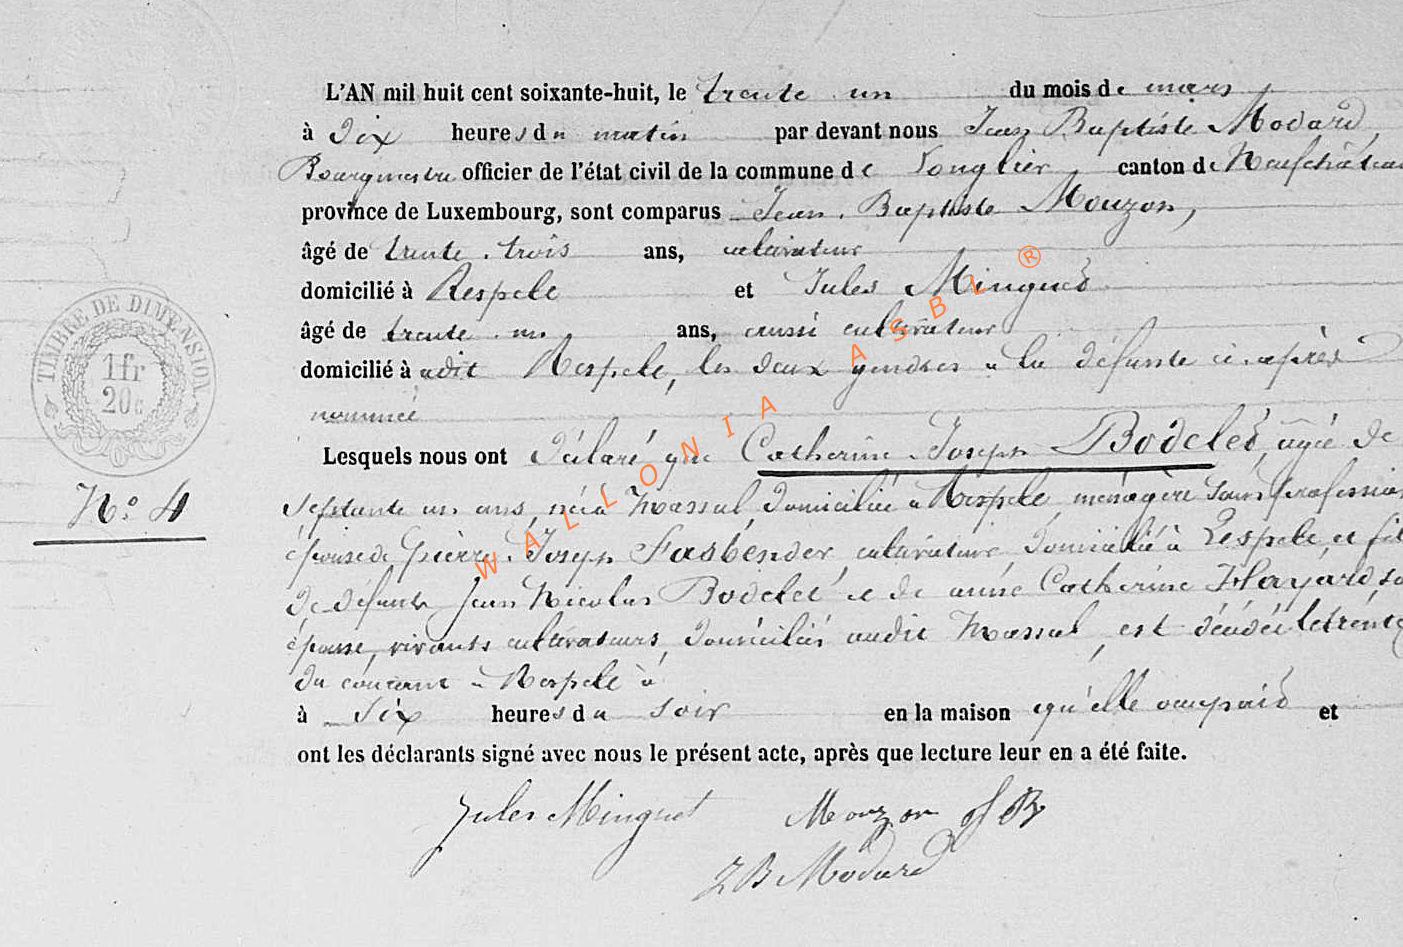 L'AN mil huit cent soixante-huit, le trente un du mois de mars
à dix heures du matin par devant nous Jean Baptiste Modard,
Bourgmestre officier de l'état civil de la commune de Longlier canton de Neufchâteau
province de Luxembourg, sont comparus Jean Baptiste Mouzon,
âgé de trente trois ans, cultivateur
domicilié à Respele et Jules Minguet
âgé de trente un ans, aussi cultivateur
domicilié à udit Respele, les deux gendres à la défunte ci après
nommée
Lesquels nous ont déclaré que Catherine Joseph Bodelet, âgée de
septante un ans, née à Massul, domiciliée à Respele, ménagère sans profession
épouse de Pierre Joseph Fasbender, cultivateur, domicilié à Respele, et fil
de défunts Jean Nicolas Bodelet et de anne Catherine Hayard, sa
épouse, vivants cultivateurs, domiciliés audit Massul, est décédée le trente
du courant à Respele à
à six heures du soir en la maison qu'elle occupait et
ont les déclarants signé avec nous le présent acte, après que lecture leur en a été faite.
Jules Minguet Mouzon JB
JB Modard
TIMBRE DE DIMENSION
1fr
20c
No. 4
WALLONIA ASBL ®